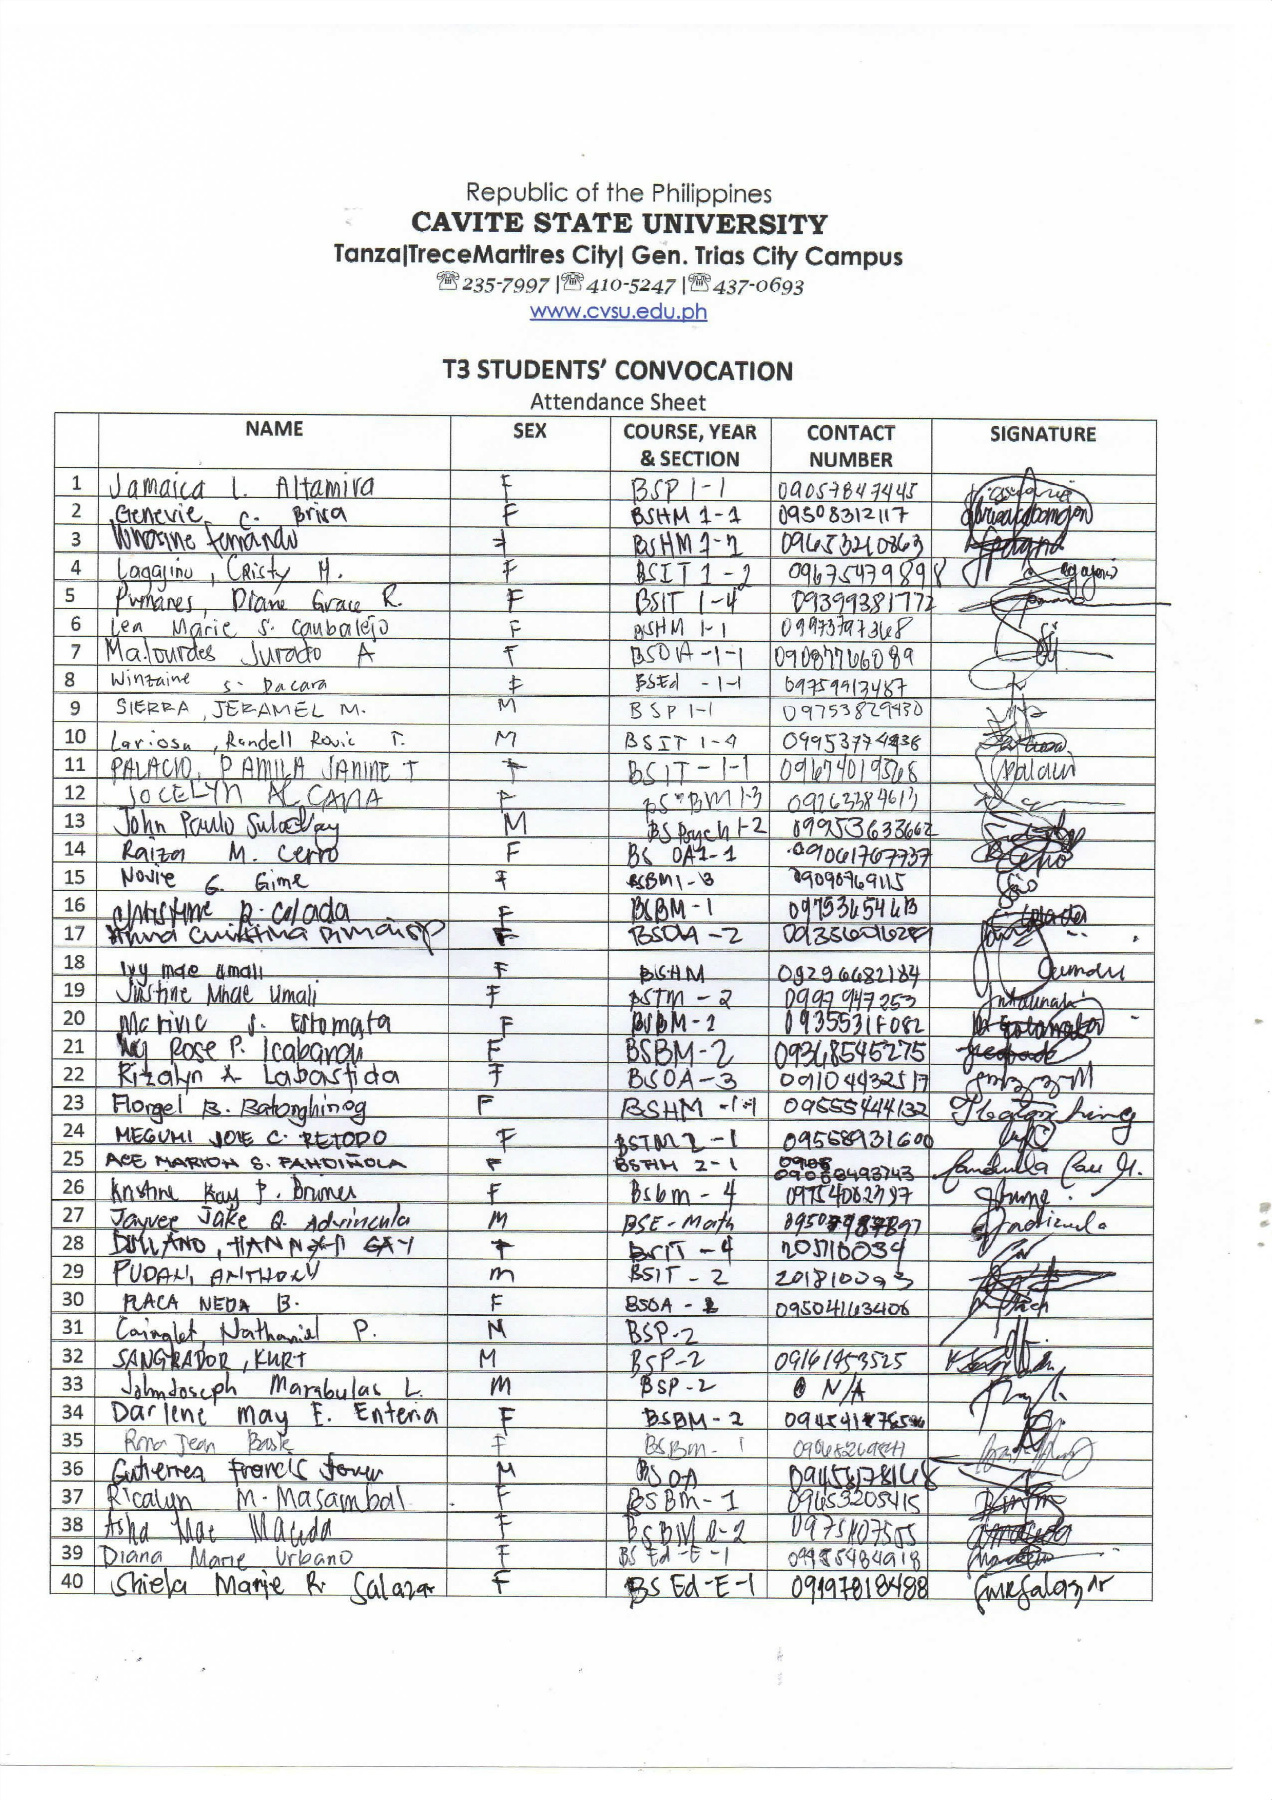 Republic of the Philippines
CAVITE STATE UNIVERSITY
Tanza|TreceMartires City| Gen. Trias City Campus
☏235-7997 |☏410-5247 |☏437-0693
www.cvsu.edu.ph
T3 STUDENTS' CONVOCATION
Attendance Sheet
NAME SEX COURSE, YEAR & SECTION CONTACT NUMBER SIGNATURE
1 Jamaica L. Altamira F BSP 1-1 09057847445
2 Genevie C. Brisa F BSHM 1-1 09508312117
3 Fernando F BSHM 1-1 09653210863
4 Lagajinu, Cristy M. F BSIT 1-2 09675479898
5 Diane Grace R. F BSIT 1-4 09399381772
6 Len Marie S. Caubalejo F BSHM 1-1 09973797368
7 Ma.lourdes Jurado A F BSOA-1-1 09087706089
8 Winzaine S. Dacara F BSEd -1-1 09759913487
9 SIERRA, JERAMEL M. M BSP 1-1 09753829430
10 Lariosa, Randell Rovic T. M BSIT 1-4
11 PALACIO, PAMILA JANINE T F BSIT-1-1
12 JOCELYN ALCANA F BSBM 1-3 09263384613
13 John Paulo M BS Psych 1-2 09953633662
14 Raiza M. Cerro F BS OA1-1 09061767737
15 Novie G. Gime F BSBM1-B 09090769115
16 Christine R. Colada F BSBM-1 09753654613
17 Anna Christina F BSOA-2
18 Ivy mae umali F BSHM 09296682184
19 Justine Mhae Umali F BSTM-2 0997947253
20 Marivic S. Estomata F BSBM-2
21 Ivy Rose P. Icabandi F BSBM-2 09368545275
22 Rizalyn A. Labastida F BSOA-3 09104432517
23 Florgel B. Batonghinog F BSHM -1-1 09555444132
24 MEGUMI JOIE C. RETODO F BSTM 2-1 09568931600
25 ACE MARION S. PANDIÑOLA F BSHM 2-1 09068493743
26 Kristine Kay P. Brunes F Bsbm-4
27 Jayvee Jake Q. Advincula M BSE-Math
28 HANNAH GAY F BSIT-4
29 PUDAN, ANTHONY M BSIT-2 201810093
30 PLACA NEDA B. F BSOA - 09504163406
31 Nathaniel P. M BSP-2
32 SANGRADOR, KURT M BSP-2 09161953525
33 Johndoseph Marabulas L. M BSP-2 N/A
34 Darlene May E. Enteria F BSBM-2
35 Jean F BSBm-1
36 Gutierrez Francis M BSOA 09458178168
37 Ricalyn M. Masambal F BSBm-1 09453205415
38 Asha Mae F BSBM 2-2
39 Diana Marie Urbano F BS Ed-E-1 09955484918
40 Shiela Marie R. Salazar F BS Ed-E-1 09197818488 SMRSalazar